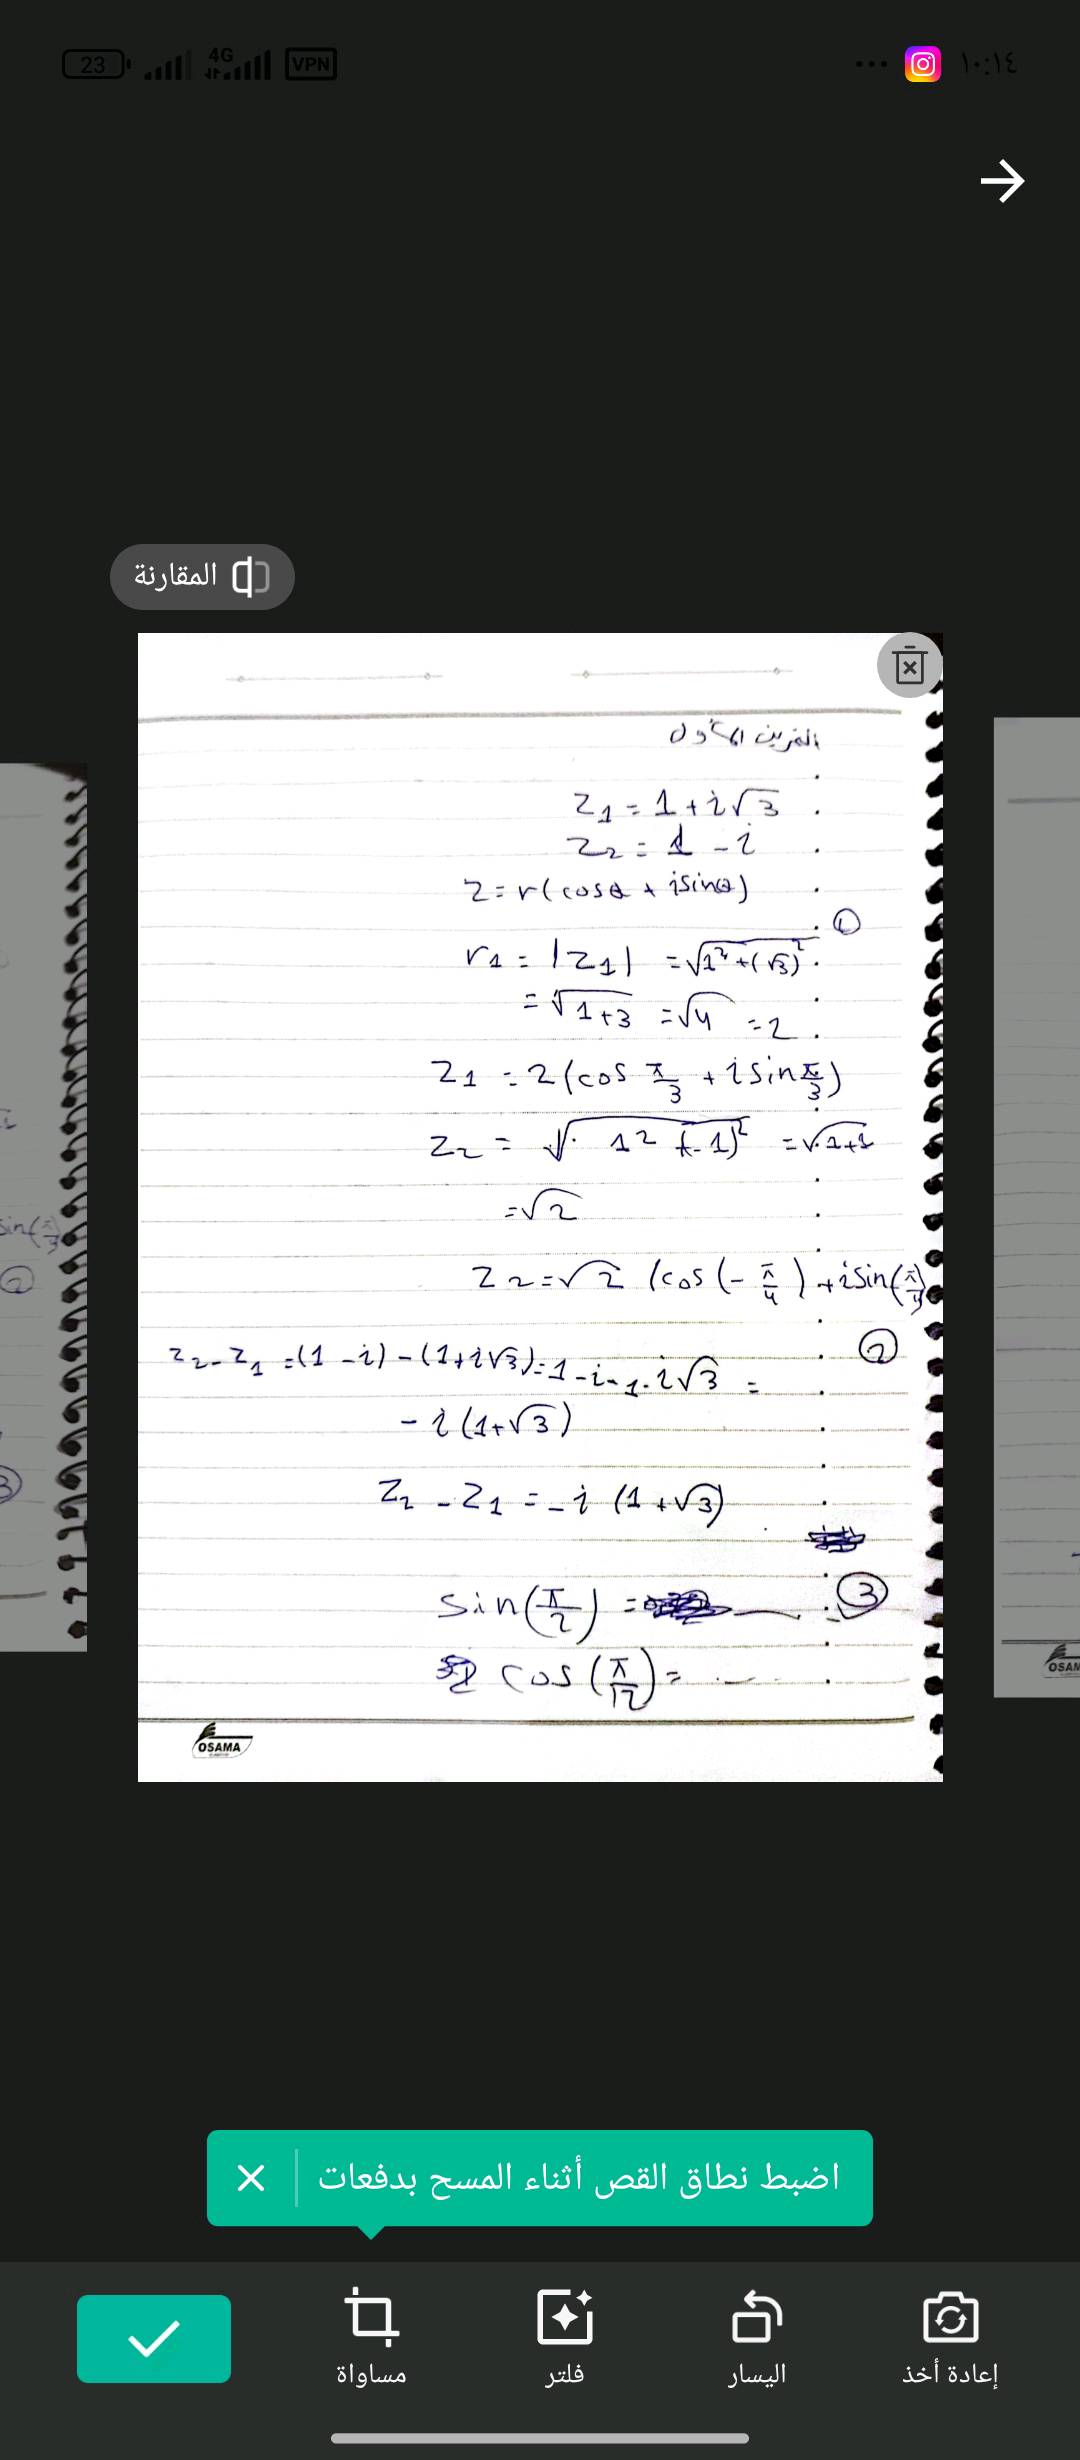 23 4G VPN ... ١٠:١٤
المقارنة
التمرين الأول
z₁ = 1 + i√3
z₂ = 1 - i
z = r(cosθ + isinθ)
①
r₁ = |z₁| = √1² + (√3)²
= √1+3 = √4 = 2
z₁ = 2(cos π/3 + i sin π/3)
z₂ = √1² + (-1)² = √1+1
= √2
z₂ = √2 (cos(-π/4) + i sin(π/4)
②
z₂ - z₁ = (1 - i) - (1 + i√3) = 1 - i - 1 - i√3 =
- i (1+√3)
z₂ - z₁ = - i (1 + √3)
③
sin(π/2) =
cos(π/12) =
OSAMA
sin(π/3)
②
3
OSAM
اضبط نطاق القص أثناء المسح بدفعات
إعادة أخذ
اليسار
فلتر
مساواة